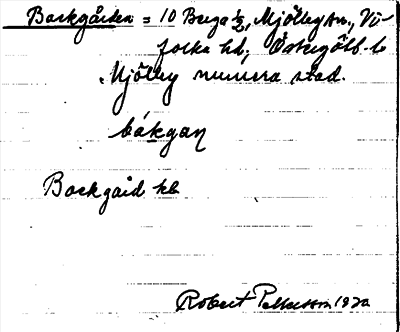 Backgården = 10 Berga ½, Mjölby sn., Vi-
folka hd, Östergötl. l.
Mjölby numera stad.
bákgan
Backgaid kb
Robert Pettersson 1920